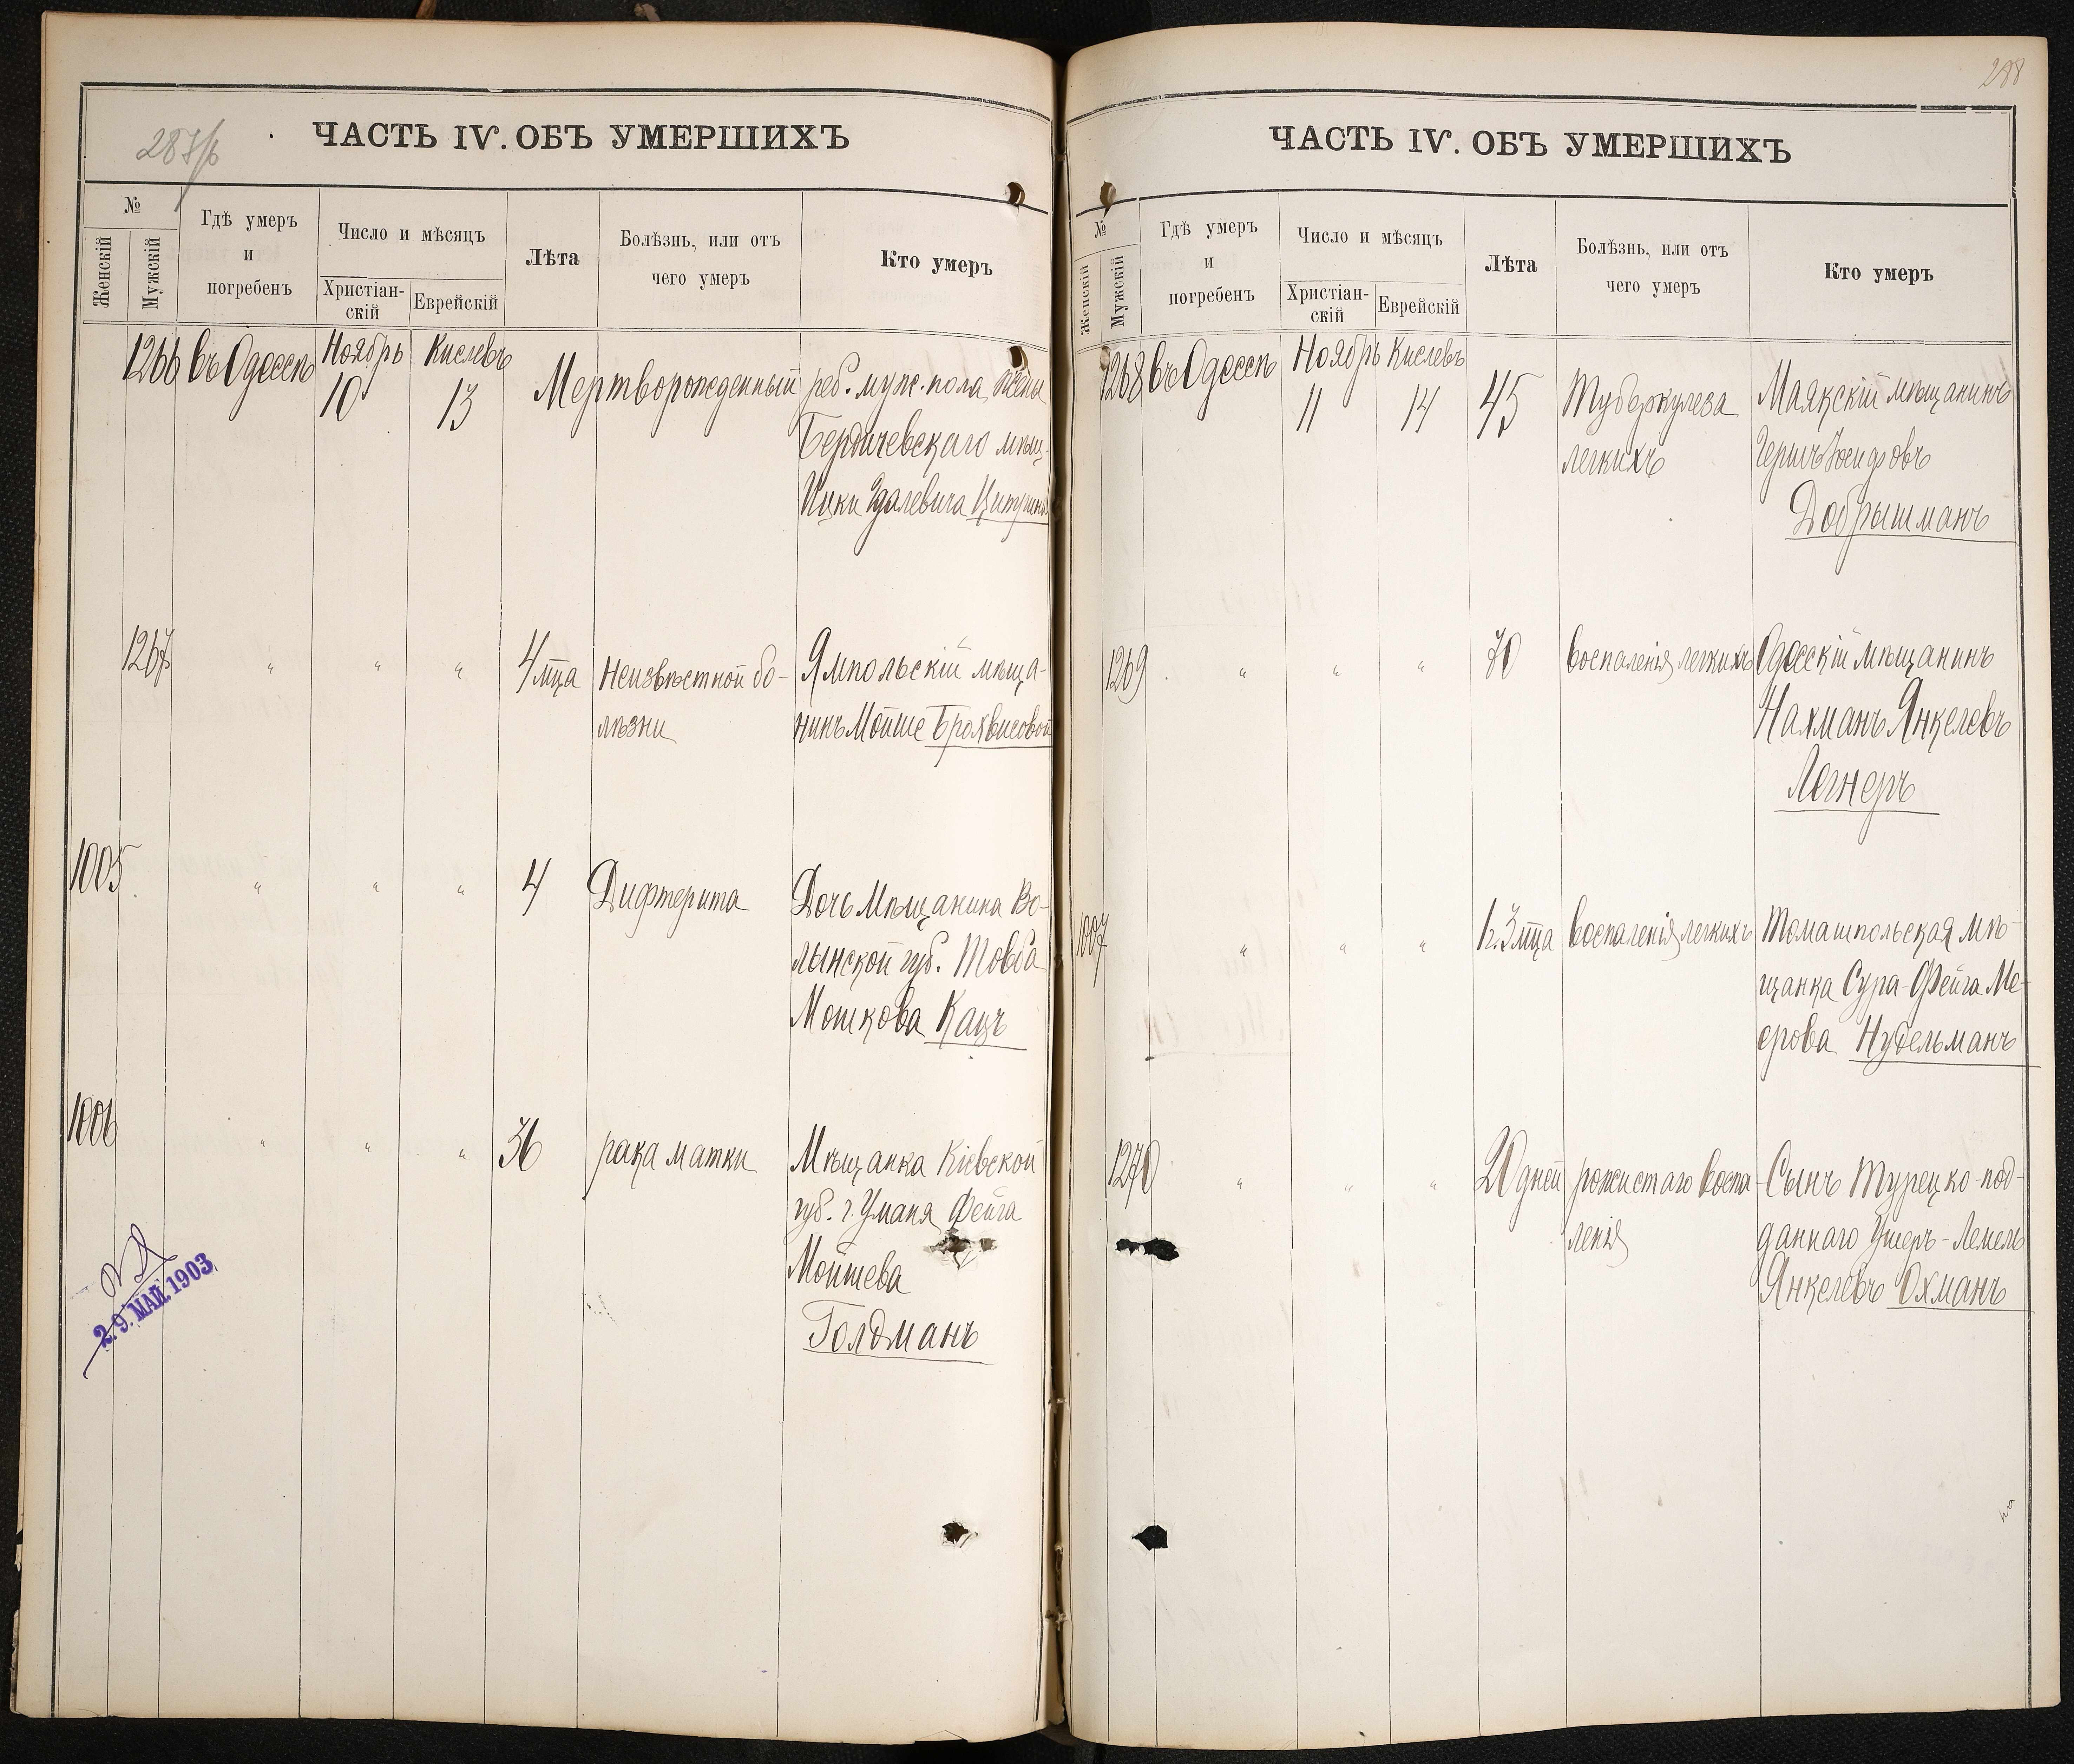 287/б
ЧАСТЬ IV. ОБЪ УМЕРШИХЪ
№
Женскій
Мужскій
Гдѣ умеръ
и
погребенъ
Число и мѣсяцъ
Христіан-
скій
Еврейскій
Лѣта
Болѣзнь, или отъ
чего умеръ
Кто умеръ
1266 въ Одессѣ Ноябрь Кислевъ
10 13 Мертворожденный реб. муж. пола, жены
Бердичевскаго мѣщ.
Ицки Удалевича
1267 " " " 4 мца Неизвѣстной бо- Ямпольскій мѣща-
лѣзни нинъ Мойше
1005 " " " 4 Дифтерита Дочь Мѣщанина Во-
лынской губ. Товба
Мошкова Кацъ
1006 " " " 36 рака матки Мѣщанка Кіевской
губ. г. Уманя Фейга
Мойшева
Голдманъ
29. МАЙ 1903
288
ЧАСТЬ IV. ОБЪ УМЕРШИХЪ
№
Женскій
Мужскій
Гдѣ умеръ
и
погребенъ
Число и мѣсяцъ
Христіан-
скій
Еврейскій
Лѣта
Болѣзнь, или отъ
чего умеръ
Кто умеръ
1268 въ Одессѣ Ноябрь Кислевъ
11 14 45 Туберкулеза Маякскій мѣщанинъ
легкихъ Гершъ
Добрышманъ
1269 " " " 70 воспаленія легкихъ Одесскій мѣщанинъ
Нахманъ Янкелевъ
Легнеръ
1007 " " " 1 г. 3 мца воспаленія легкихъ Томашпольская мѣ-
щанка Сура-Фейга Ме-
ерова Нудельманъ
1270 " " " 20 дней рожистаго воспа- Сынъ Турецко-под-
ленія даннаго Ушеръ-Лемель
Янкелевъ Охманъ